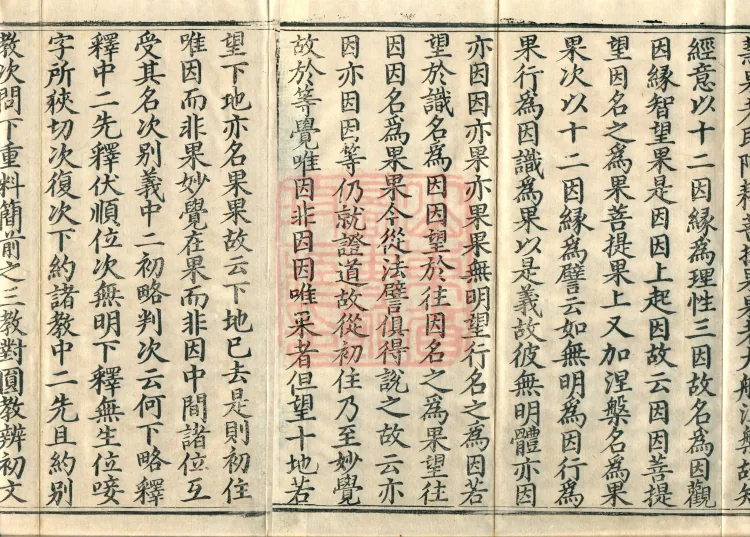 經意以十二因緣爲理性三因故名爲因觀
因緣智望果是因因上起因故云因因菩提
望因名之爲果菩提果上又加涅槃名爲果
果次以十二因緣爲譬云如無明爲因行爲
果行爲因識爲果以是義故彼無明體亦因
亦因因亦果亦果果無明望行名之爲因若
望於識名爲因因望於往因名之爲果望往
因因名爲果果今從法譬俱得說之故云亦
因亦因因等仍就證道故從初住乃至妙覺
故於等覺唯因非因因唯果者但望十地若
望下地亦名果果故云下地已去是則初住
唯因而非果妙覺在果而非因中間諸位互
受其名次別義中二初略判次云何下略釋
釋中二先釋伏順位次無明下釋無生位唼
字所狹切次復次下約諸教中二先且約別
教次問下重料簡前之三教對圓教辨初文